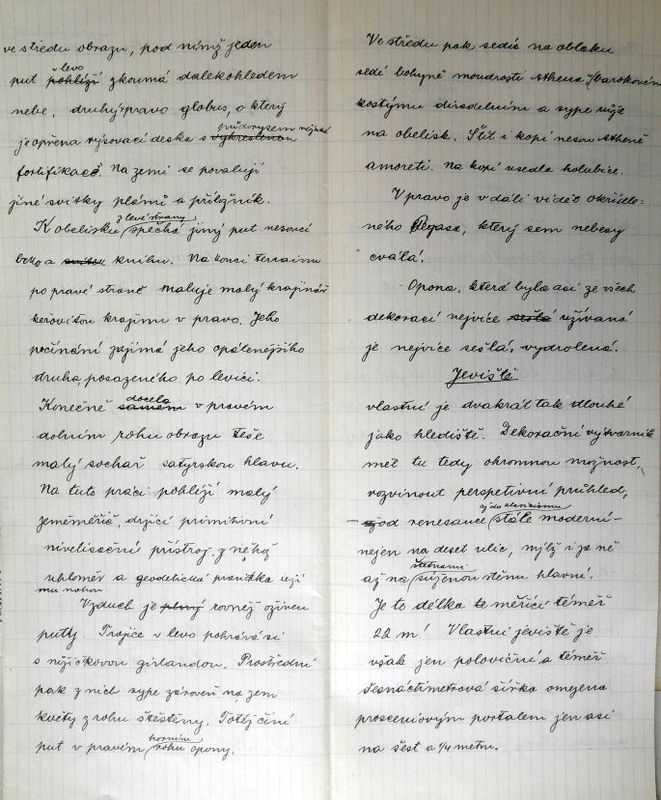 ve středu obrazu, pod nímž jeden
vlevo
put pohlíží zkoumá dalekohledem
nebe, druhý vpravo globus, o který
půdorysem nějaké
je opřena rýsovací deska s vykreslenou
fortifikace. Na zemi se povalují
jiné svitky plánů a příložník.
z levé strany
K obelisku spěchá jiný put nesoucí
brko a knihu. Na konci terrainu
po pravé straně maluje malý krajinář
keřovitou krajinu v pravo. Jeho
počínání zajímá jeho opálenějšího
druha, posazeného po levici.
docela
Konečně samém v pravém
dolním rohu obrazu teše
malý sochař satyrskou hlavu.
Na tuto práci pohlíží malý
zeměměřič, držící primitivní
nivelisační přístroj, z něhož
úhloměr a geodetická
mu nohou
Vzduch je plný rovněž oživen
putty. Trojice v levo pohrává si
s růžičkovou girlandou. Prostřední
pak z nich sype zároveň na zem
květy z rohu štěstěny. Totéž činí
horním
put v pravém rohu opony.
Ve středu pak sedíc na oblaku
sedí bohyně moudrosti Athena, v barokovém
kostýmu divadelním a sype růže
na obelisk. Štít i kopí nesou Atheně
amoreti. Na kopí usedla holubice.
V pravo je v dáli viděti okřídle-
ného Pegasa, který sem nebesy
cválá.
Opona, která byla asi ze všech
dekorací nejvíce sešlá užívaná
je nejvíce sešlá, vydrolená.
Jeviště
vlastní je dvakrát tak dlouhé
jako hlediště. Dekorační výtvarník
měl tu tedy ohromnou možnost,
rozvinout perspetivní průhled,
až do klasicismu
od renesance stále moderní-
nejen na deset ulic, nýbrž i je ně
až na súženou stěnu hlavní.
Je to délka te měřící téměř
22 m! Vlastní jeviště je
však jen poloviční a téměř
šesnáctimetrová šířka omezena
prosceniovým portálem jen asi
na šest a 1/4 metru.